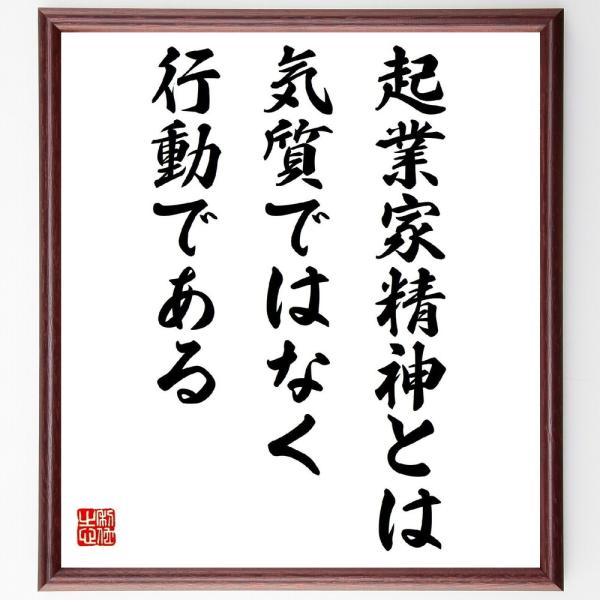 起業家精神とは
気質ではなく
行動である